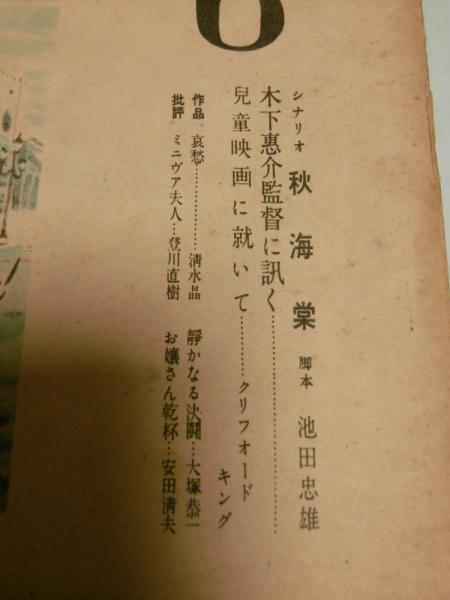 6
シナリオ 秋海棠 脚本 池田忠雄
木下惠介監督に訊く…………
兒童映画に就いて………クリフオード
キング
作品 哀愁……………清水晶 靜かなる決鬪…大塚恭一
批評 ミニヴア夫人…登川直樹 お孃さん乾杯…安田清夫